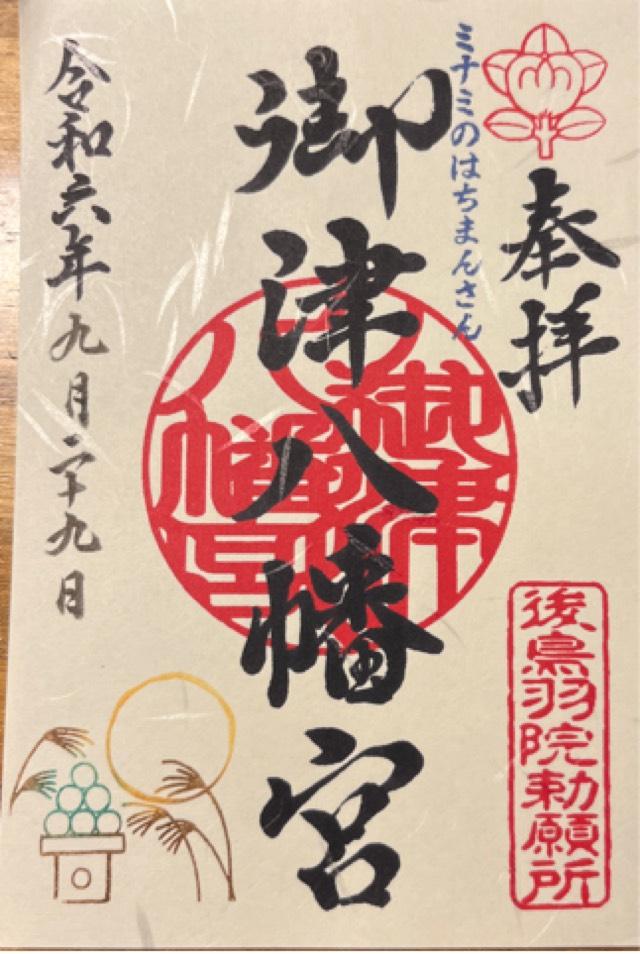 奉拝
後鳥羽院勅願所
ミナミのはちまんさん
御津八幡宮
御津
八幡宮
令和六年九月二十九日